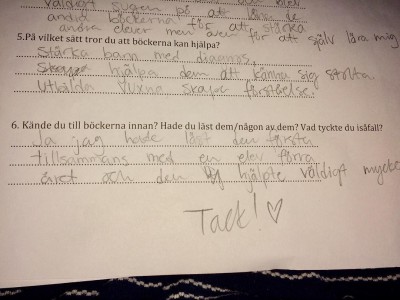 väldigt sugen på att
andra böckerna för att stärka
andra elever men även för att själv lära mig.
5.På vilket sätt tror du att böckerna kan hjälpa?
Stärka barn med diagnos,
hjälpa dem att känna sig stolta.
Utbilda vuxna skapa förståelse.
6. Kände du till böckerna innan? Hade du läst dem/någon av dem? Vad tyckte du isåfall?
Ja jag hade läst den första
tillsammans med en elev förra
året och den hjälpte väldigt mycket
Tack! ♡